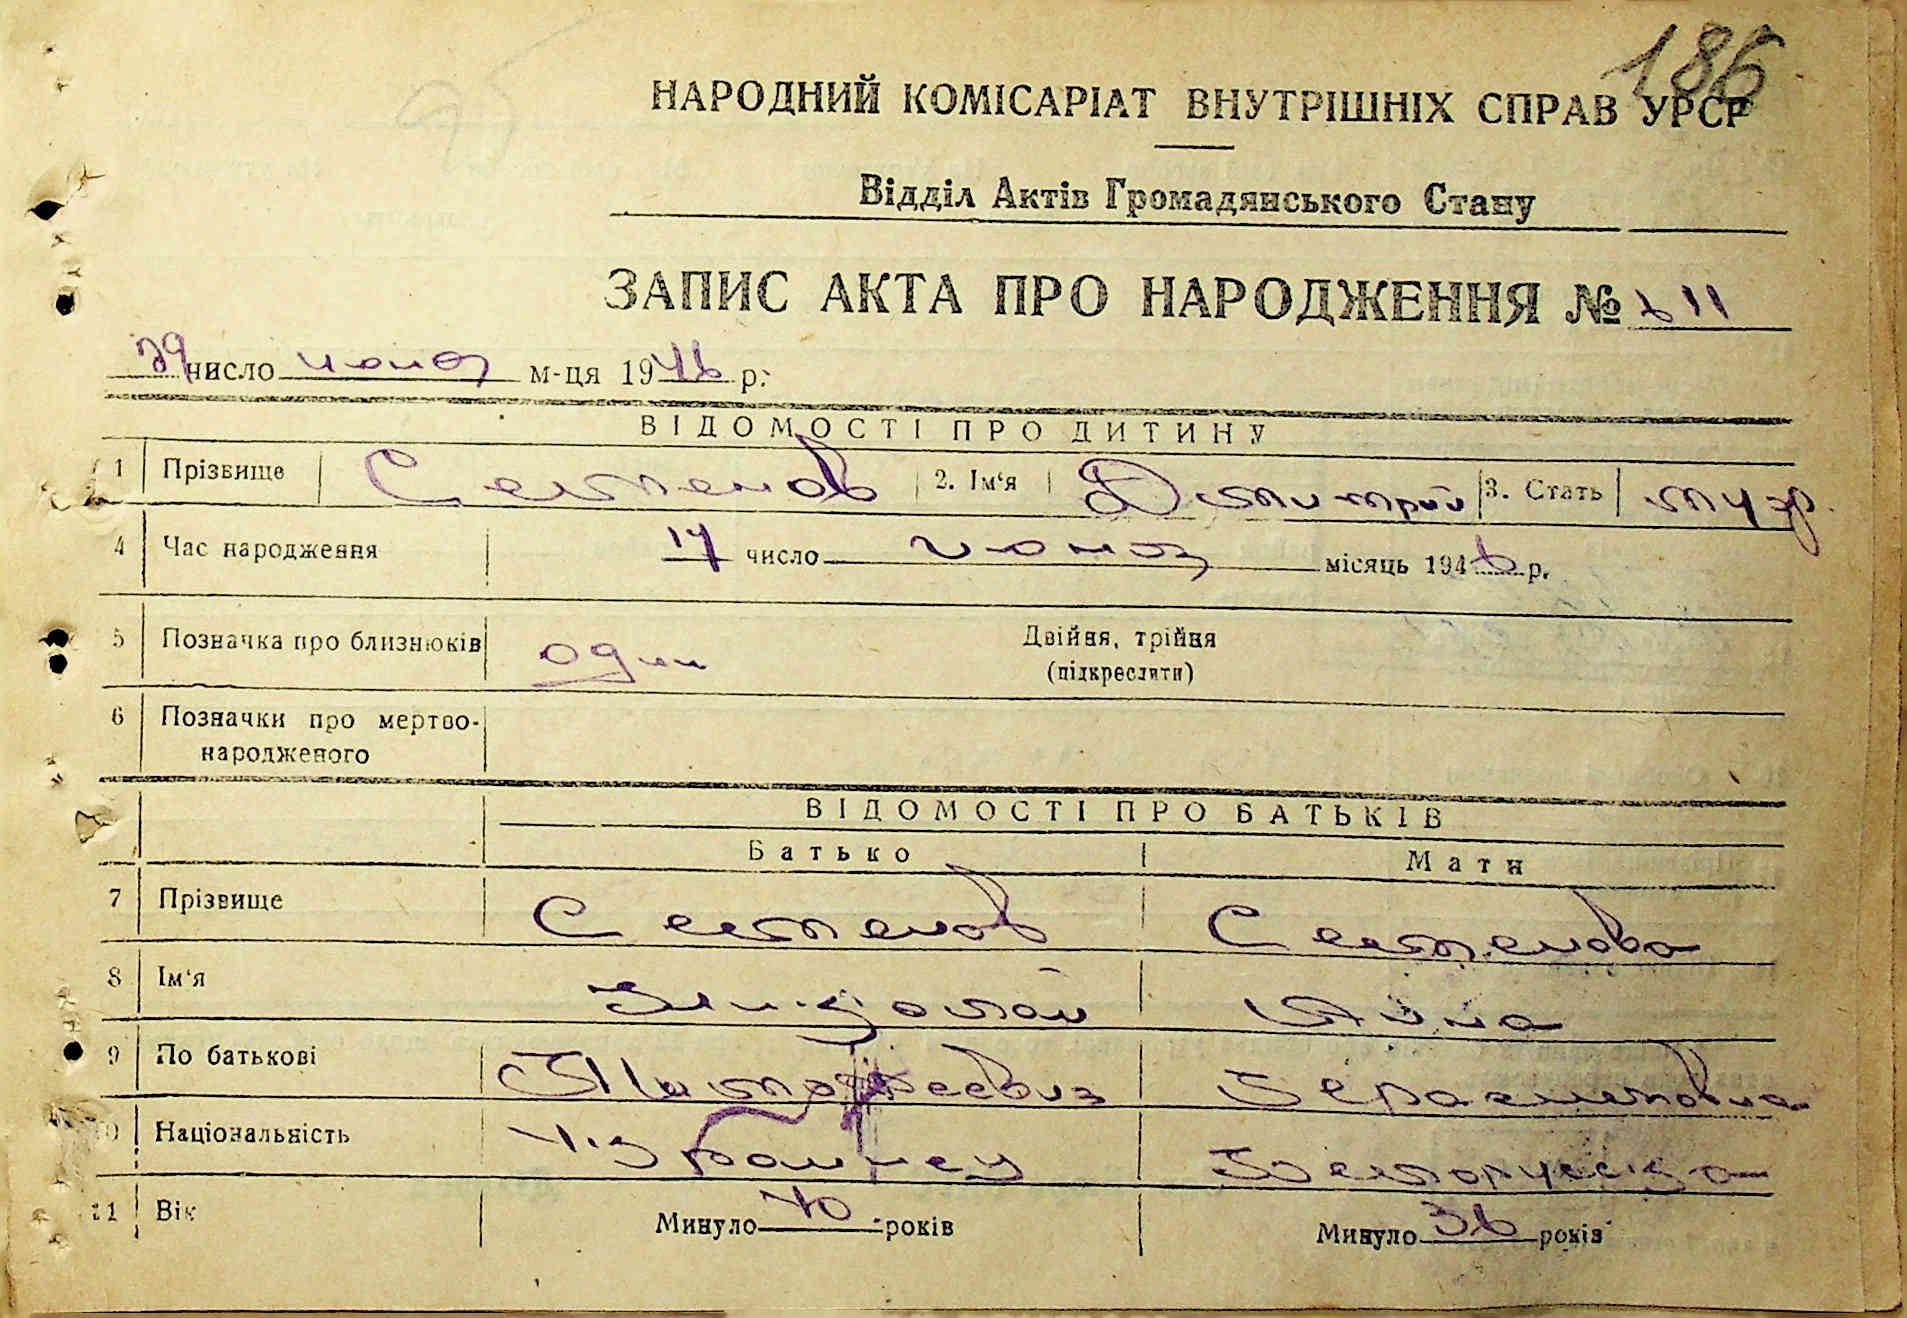 186
НАРОДНИЙ КОМІСАРІАТ ВНУТРІШНІХ СПРАВ УРСР
Відділ Актів Громадянського Стану
ЗАПИС АКТА ПРО НАРОДЖЕННЯ №
29 число июня м-ця 1946 р.
ВІДОМОСТІ ПРО ДИТИНУ
1 Прізвище Семенов 2. Ім'я Дмитрий 3. Стать муж.
4 Час народження 17 число июня місяць 1946 р.
5 Позначка про близнюків один Двійня, трійня
(підкреслити)
6 Позначки про мертво-
народженого
ВІДОМОСТІ ПРО БАТЬКІВ
Батько Мати
7 Прізвище Семенов Семенова
8 Ім'я Николай Анна
9 По батькові Тимофеевич Герасимовна
10 Національність Белоруска
11 Вік Минуло 40 років Минуло 36 років